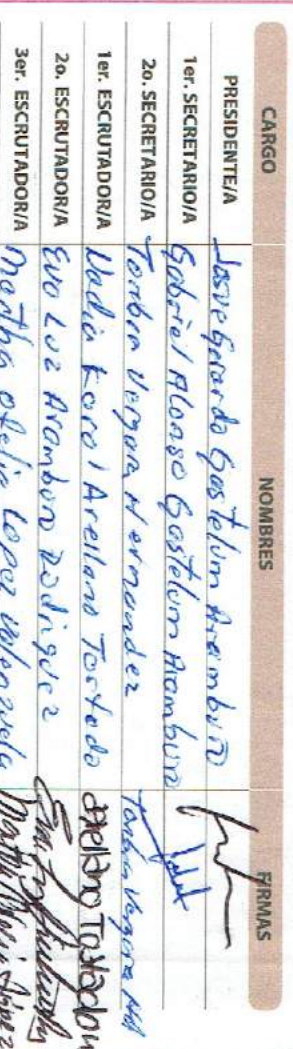 CARGO NOMBRES FIRMAS
PRESIDENTE/A Gerardo Gastelum Aramburo
1er. SECRETARIO/A Gabriel Alonso Gastelum Aramburo
2o. SECRETARIO/A Vergara Hernandez
1er. ESCRUTADOR/A Nadia Karol Arellano Tostado Arellano Tostado
2o. ESCRUTADOR/A Eva Luz Aramburo Rodriguez
3er. ESCRUTADOR/A Martha Ofelia Lopez Valenzuela